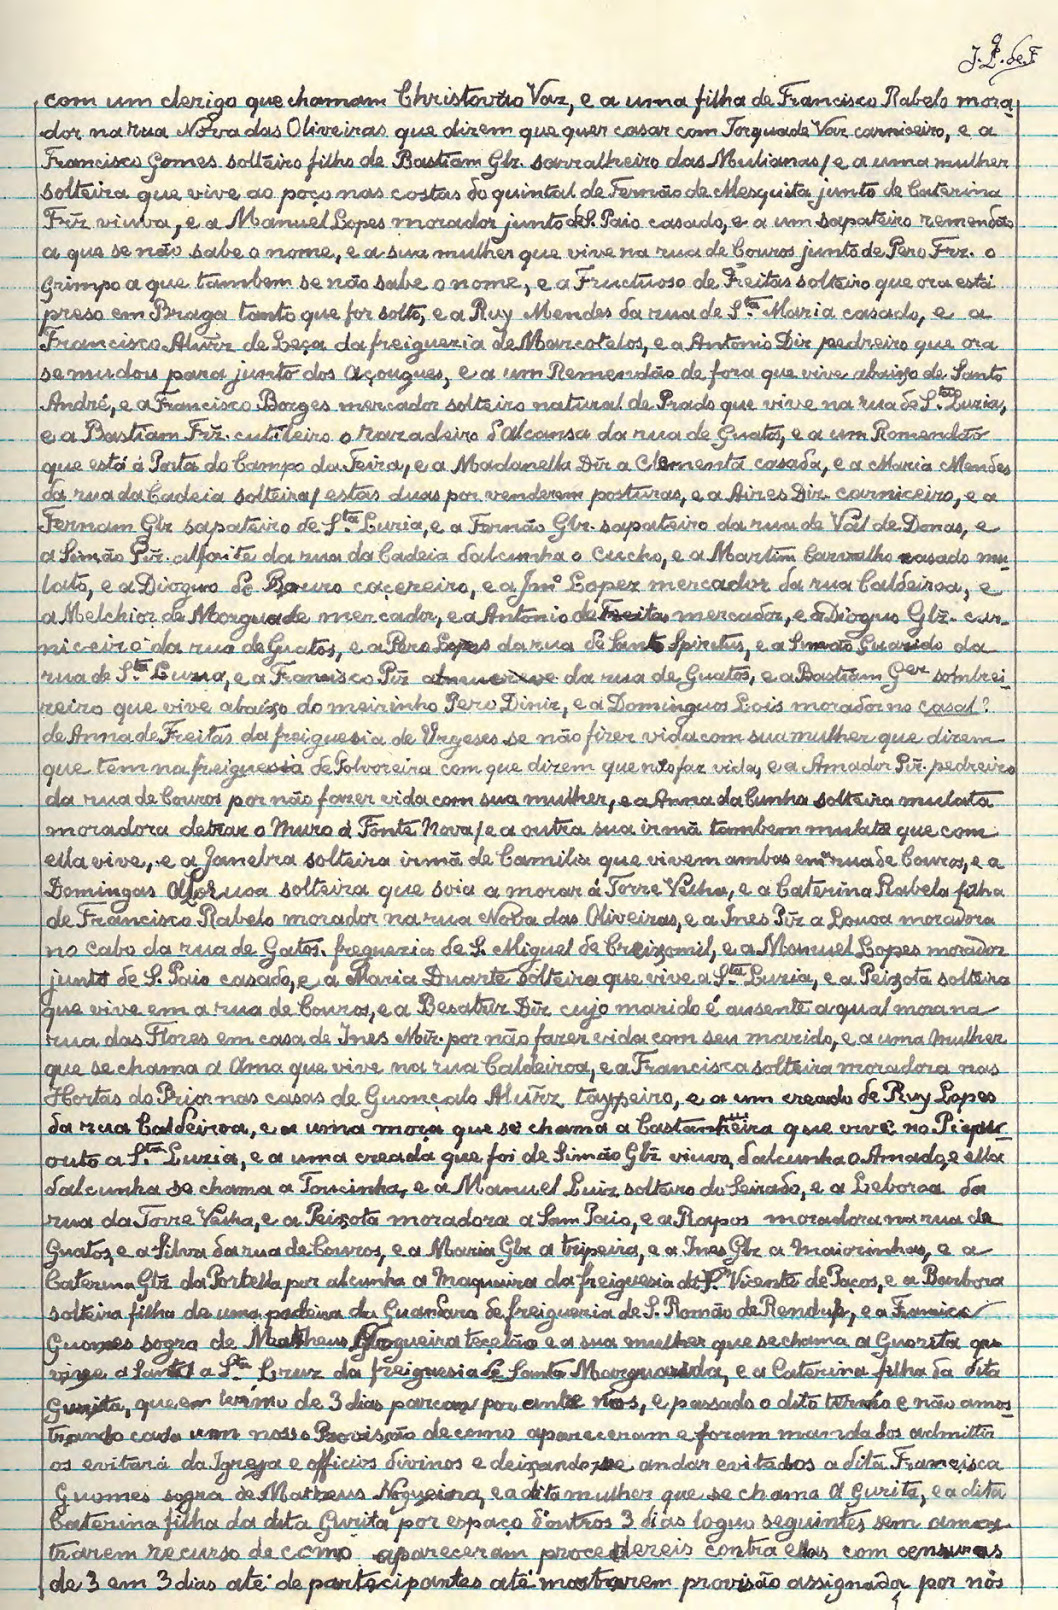 J. L. de F
com um clerigo que chamam Christovão Vaz, e a uma filha de Francisco Rabelo mora-
dor na rua Nova das Oliveiras que dizem que quer casar com Torquade Vaz carniceiro, e a
Francisco Gomes solteiro filho de Bastiam Glz. sarralheiro das Mulianas/ e a uma mulher
solteira que vive ao poço nas costas do quintal de Fernão de Mesquita junto de Caterina
Frz viuva, e a Manuel Lopes morador junto de S. Paio casado, e a um sapateiro remendão
a que se não sabe o nome, e a sua mulher que vive na rua de Couros junto de Pero Frz. o
Grimpo a que tambem se não sabe o nome, e a Fructuoso de Freitas solteiro que ora está
preso em Braga tanto que for solto, e a Ruy Mendes da rua de S.ta Maria casado, e a
Francisco Alvrz de Leça da freiguezia de Marcotelos, e a Antonio Diz pedreiro que ora
se mudou para junto dos Açougues, e a um Remendão de fora que vive abaixo de Santo
André, e a Francisco Borges mercador solteiro natural de Prado que vive na rua de S.ta Luzia,
e a Bastiam Frz. cutileiro o razadeiro d'alcunsa da rua de Guatos, e a um Romendão
que está á Porta do Campo da Feira, e a Madanella Diz a Clementa casada, e a Maria Mendes
da rua da Cadeia solteira/ estas duas por venderem posturas, e a Aires Diz. carniceiro, e a
Fernam Glz sapateiro de S.ta Luzia, e a Fernão Glz. sapateiro da rua de Val de Donas, e
a Simão Piz. alfaite da rua da Cadeia dalcunha o Cucho, e a Martim Carvalho casado mu-
lato, e a Dioguo de Bouro caçereiro, e a Jmº Lopez mercador da rua Caldeiroa, e
a Melchior de Morguade mercador, e a Antonio de Freitas mercador, e a Dioguo Glz. car-
niceiro da rua de Guatos, e a Pero Lopes da rua de Santo Spiritus, e a Simão Guarido da
rua de S.ta Luzia, e a Francisco Piz almocreve da rua de Guatos, e a Bastiam Ger sombrei-
reiro que vive abaixo do meirinho Pero Diniz, e a Dominguos Lois morador no casal?
de Anna de Freitas da freiguesia de Urgeses se não fizer vida com sua mulher que dizem
que tem na freiguesia de Polvoreira com que dizem que não faz vida, e a Amador Piz. pedreiro
da rua de Couros por não fazer vida com sua mulher, e a Anna da Cunha solteira mulata
moradora detraz o Muro á Fonte Nova/ e a outra sua irmã tambem mulata que com
ella vive, e a Janebra solteira irmã de Camilia que vivem ambas em a rua de Couros, e a
Domingas solteira que soia a morar á Torre Velha, e a Caterina Rabela filha
de Francisco Rabelo morador na rua Nova das Oliveiras, e a Ines Piz a Louoa moradora
no cabo da rua de Gatos. freguezia de S. Miguel de Creixomil, e a Manuel Lopes morador
junto de S. Paio casado, e a Maria Duarte solteira que vive a S.ta Luzia, e a Peixota solteira
que vive em a rua de Couros, e a Besatriz Diz cujo marido é ausente a qual mora na
rua das Flores em casa de Ines Miz. por não fazer vida com seu marido, e a uma Mulher
que se chama a Ama que vive na rua Caldeiroa, e a Francisca solteira moradora nas
Hortas do Prior nas casas de Guonçalo Alvrz taypeiro, e a um creado de Ruy Lopes
da rua Caldeiroa, e a uma moça que se chama a Castanheira que vive no
outo a S.ta Luzia, e a uma creada que foi de Simão Glz viuvo, dalcunha o Amado, e ella
dalcunha se chama a Toucinha, e a Manuel Luiz solteiro do Seirado, e a Leboroa da
rua da Torre Velha, e a Peixota moradora a Sam Paio, e a Raypos moradora na rua de
Guatos, e a Silva da rua de Couros, e a Maria Glz a tripeira, e a Ines Glz a Maiorinhas, e a
Caterina Glz da Portella por alcunha a Maqueira da freiguesia de S. Vicente de Paços, e a Barbora
solteira filha de uma padeira da Guandara de freiguezia de S. Romão de Rendufe, e a Francisca
Guomes sogra de Matheus Nogueira tecelão e a sua mulher que se chama a Guorita que
vive a Santa S.ta Cruz da freiguesia de Santa Marguarida, e a Caterina filha da dita
Gurita, que em termo de 3 dias parcam por ante nós, e passado o dito termo e não amos-
trando cada um nossa Provisão de como apareceram e foram mandados admittir
os evitará da Igreja e officios divinos e deixando-se andar evitados a dita Francisca
Guomes sogra de Matheus Nogueira, e a dita mulher que se chama a Gurita, e a dita
Caterina filha da dita Gurita por espaço d'outros 3 dias loguo seguintes sem amos-
trarem recurso de como apareceram procedereis contra ellas com censuras
de 3 em 3 dias até de participantes até mostrarem provisão assignada por nós